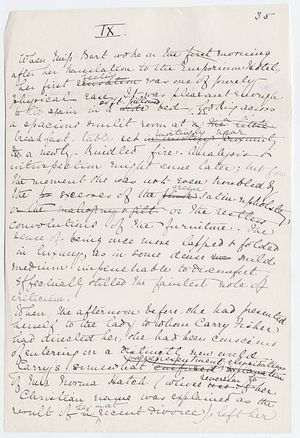 35
IX.
When Miss Bart woke on the first morning
after her translation to the Emporium Hotel,
her first sensation was one of purely
physical ease. It was pleasant enough
to lie again in a soft pillowed bed, looking across
a spacious sunlit room at a
breakfast-table set invitingly near
to a newly-kindled fire. Analysis &
introspection might come later; but for
the moment she was not even troubled by
the excesses of the green satin upholstery,
or the restless
convolutions of the furniture. The
sense of being once more lapped & folded
in luxury, as in some dense mild
medium impenetrable to discomfort
effectually stilled the faintest note of
criticism.
When, the afternoon before, she had presented
herself to the lady to whom Carry Fisher
had directed her, she had been conscious
of entering on a new world.
Carry's somewhat confused
of Mrs Norma Hatch (whose reversion to
Christian name was explained as the
result of her recent divorce), left her